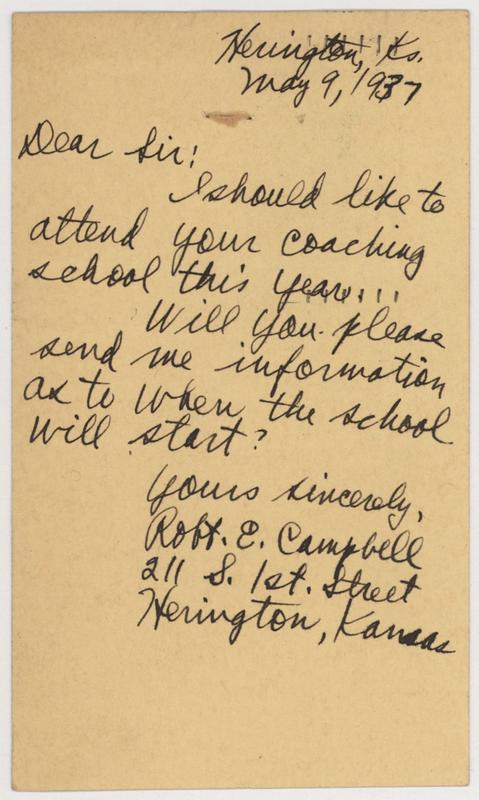 Herington, Ks.
May 9, 1937
Dear Sir:
I should like to
attend your coaching
school this year.
Will you please
send me information
as to when the school
will start?
Yours sincerely,
Robt. E. Campbell
211 S. 1st. Street
Herington, Kansas